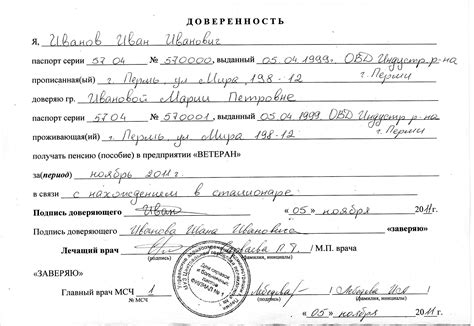 ДОВЕРЕННОСТЬ
Я, Иванов Иван Иванович
паспорт серии 57 04 № 570000, выданный 05.04.1999г. ОВД Индустр. р-на
прописанный(ая) г. Пермь, ул Мира 198-12 г. Перми
доверяю гр. Ивановой Марии Петровне
паспорт серии 5704 № 570001, выданный 05.04.1999 ОВД Индустр. р-на
проживающая(ий) г. Пермь, ул. Мира 198-12 г. Перми
получать пенсию (пособие) в предприятии «ВЕТЕРАН»
за(период) ноябрь 2011г.
в связи с нахождением в стационаре
Подпись доверяющего Иван «05» ноября 2011г.
Подпись доверяющего Иванова Ивана Ивановича «заверяю»
Лечащий врач М.П. врача
(подпись) (фамилия, инициалы)
«ЗАВЕРЯЮ»
Для справок и больничных листов
Главный врач МСЧ 1
№ МСЧ (подпись) (фамилия, инициалы)
«05» ноября 2011г.